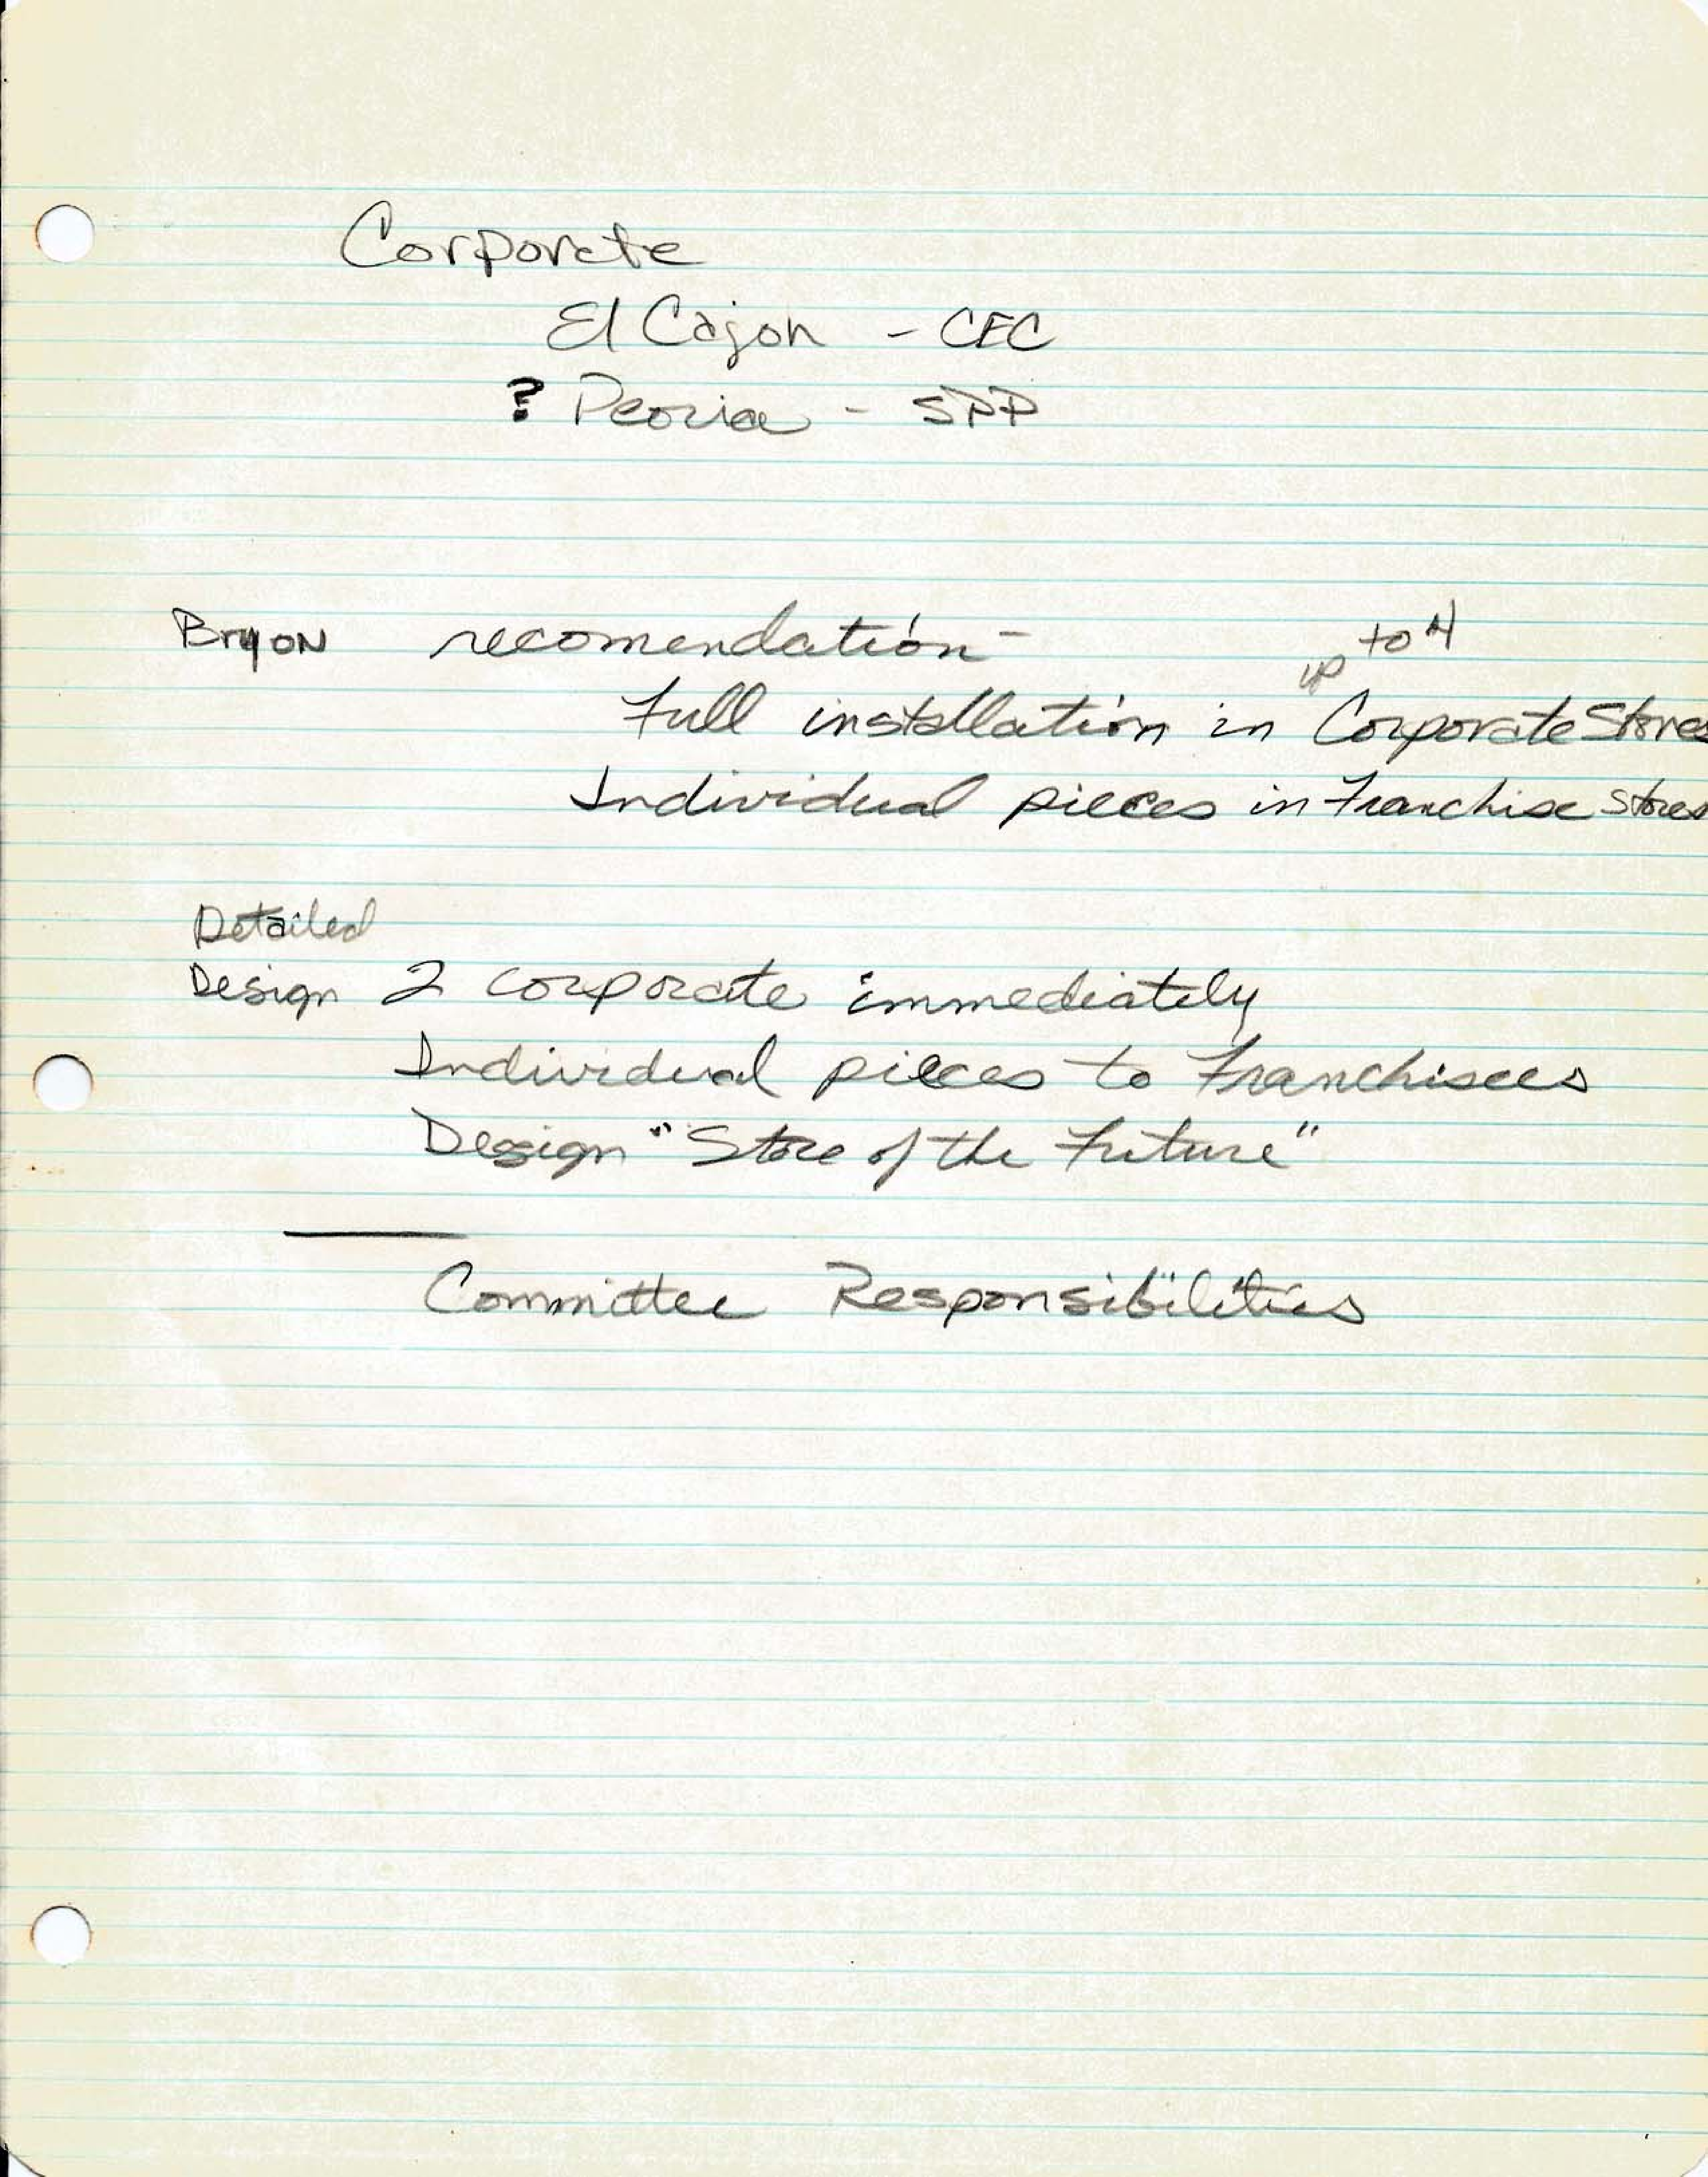 Corporate
El Cajon - CEC
? Peoria - SPP
Bryon recomendation -
up to 4
Full installation in Corporate Stores
Individual pieces in Franchise Stores
Detailed
Design 2 corporate immediately
Individual pieces to Franchisees
Design "Store of the Future"
Committee Responsibilities